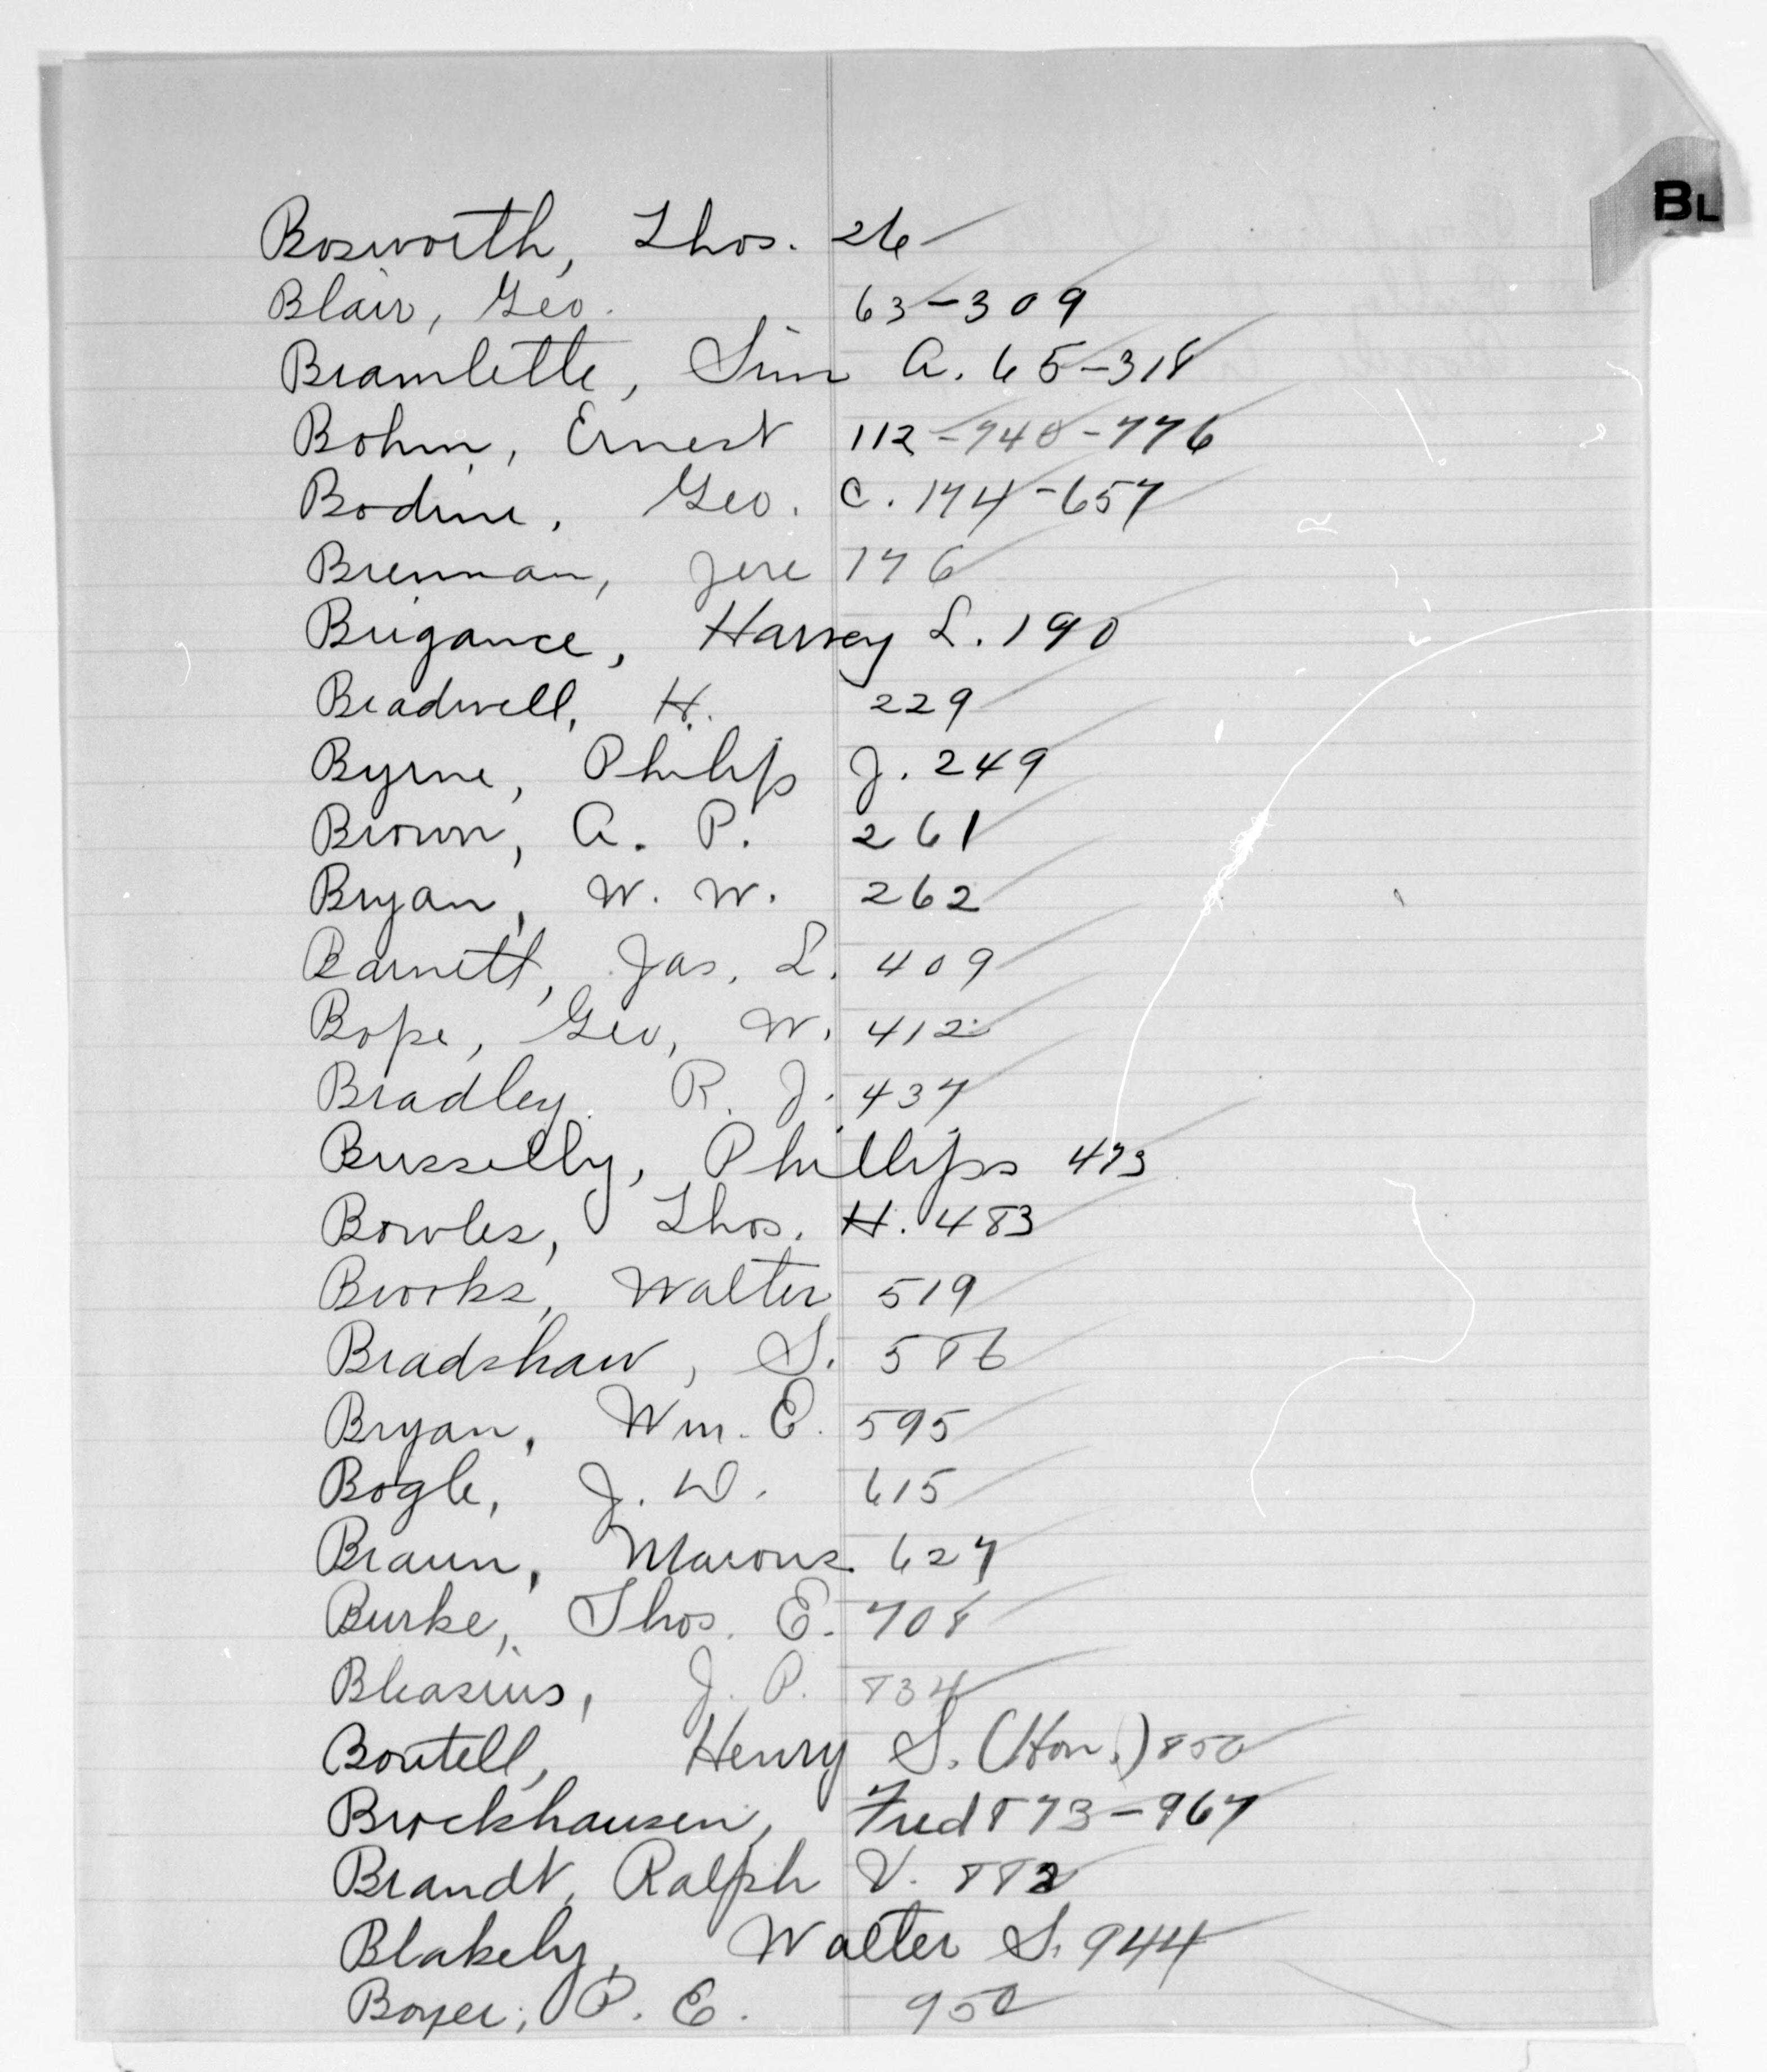 BL
Bosworth, Thos. 26
Blair, Geo. 63-309
Bramlette, Sim A. 65-318
Bohm, Ernest 112-740-776
Bodine, Geo. C. 174-657
Brennan, Jere 176
Brigance, Harvey L. 190
Bradwell, H. 229
Byrne, Philip J. 249
Brown, A. P. 261
Bryan, W. W. 262
Barnett, Jas. L. 409
Bope, Geo. W. 412
Bradley. R. J. 437
Busselby, Phillips 473
Bowles, Thos. H. 483
Brooks, Walter 519
Bradshaw, S. 586
Bryan, Wm. E. 595
Bogle, J. W. 615
Braun, Marcus 627
Burke, Thos. E. 708
Bleasius, J. P. 834
Boutell, Henry S. (Hon.) 850
Brockhausen, Fred 873-967
Brandt, Ralph V. 882
Blakely, Walter S. 944
Boyer, P. E. 950